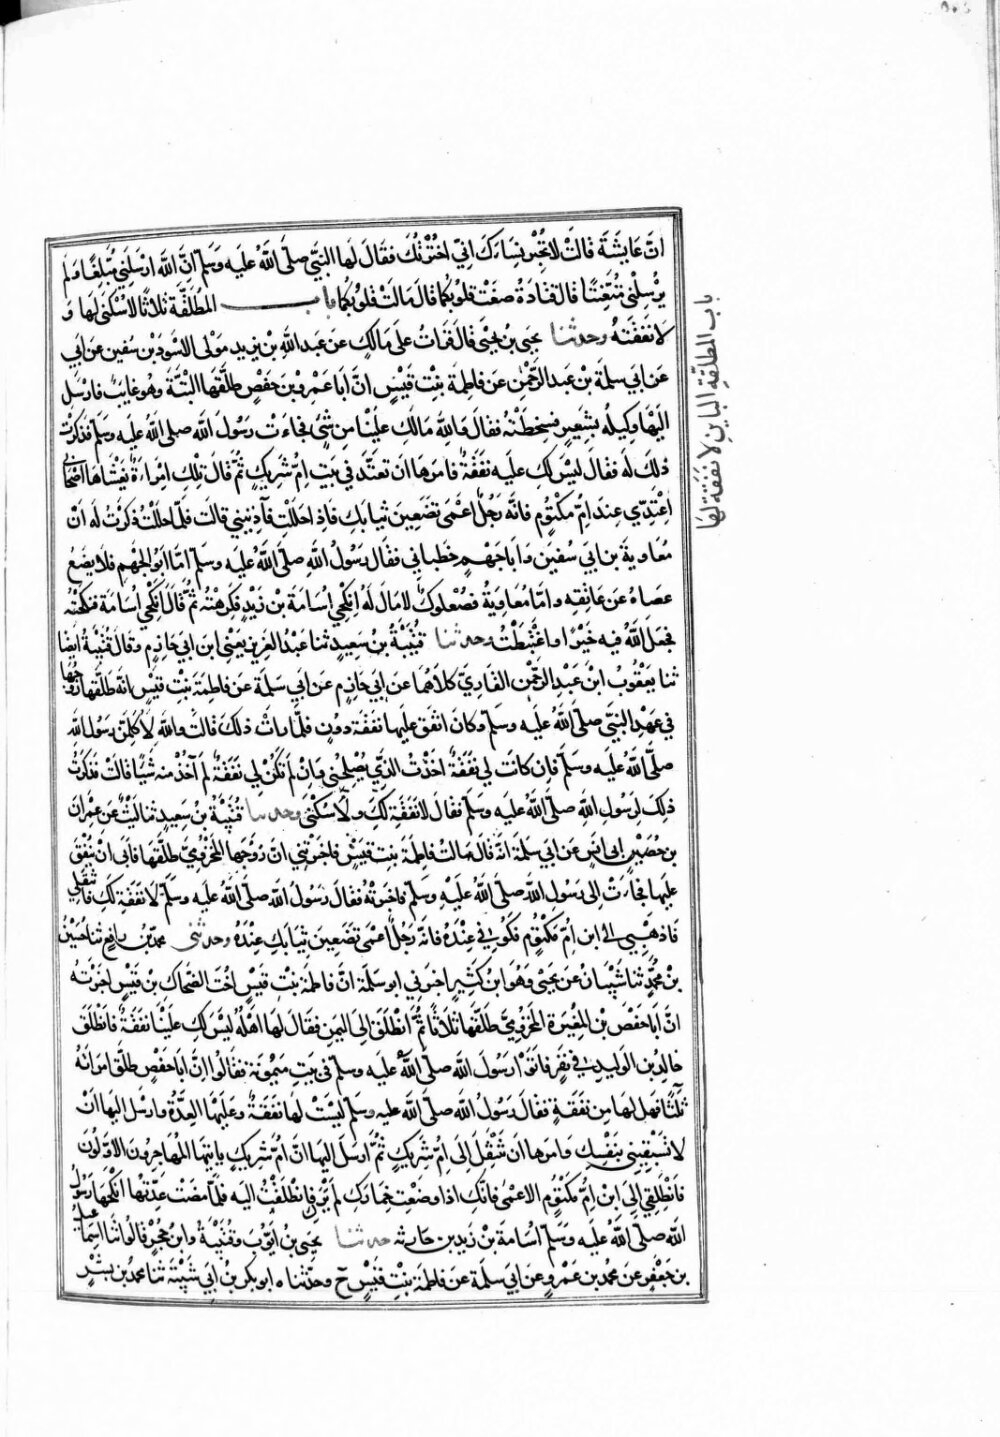 انّ عايشة قالت لا تخبر نساءك اني اخترتك فقال لها النبي صلّى الله عليه وسلم انّ الله ارسلني مبلغا ولم
يرسلني متعنتا قال قتادة صغت قلوبكما قال مالت قلوبكما باب المطلقة ثلاثا لا سكنى لها و
لا نفقة وحدثنا يحيى بن يحيى قال قرات على مالك عن عبد الله بن يزيد مولى الاسود بن سفين عن ابي
عن ابي سلمة بن عبد الرحمن عن فاطمة بنت قيس انّ ابا عمرو بن حفص طلقها البتّة وهو غايب فارسل
اليها وكيله بشعير فسخطته فقال والله مالك علينا من شئ فجاءت رسول الله صلى الله عليه وسلم فذكرت
ذلك له فقال ليس لك عليه نفقة فامرها ان تعتد في بيت ام شريك ثم قال تلك امراءة يغشاها اصحابي
اعتدّي عند ابن امّ مكتوم فانّه رجل اعمى تضعين ثيابك فاذا حللت فآذنيني قالت فلمّا حللت ذكرت له انّ
معاوية بن ابي سفين وابا جهم خطباني فقال رسول الله صلى الله عليه وسلم امّا ابو الجهم فلا يضع
عصاه عن عاتقه وامّا معاوية فصعلوك لا مال له انكحي اسامة بن زيد فكرهته ثم قال انكحي اسامة فنكحته
فجعل الله فيه خيرا واغتبطت وحدثنا قتيبة بن سعيد ثنا عبد العزيز يعني ابن ابي حازم وقال قتيبة ايضا
ثنا يعقوب ابن عبد الرحمن القاريّ كلاهما عن ابي حازم عن ابي سلمة عن فاطمة بنت قيس انه طلقها زوجها
في عهد النبيّ صلّى الله عليه وسلم وكان انفق عليها نفقة دون فلمّا رات ذلك قالت والله لاكلمنّ رسول الله
صلّى الله عليه وسلم فان كانت لي نفقة اخذت الذي يصلحني وان لم تكن لي نفقة لم آخذ منه شيًا قالت فذكرت
ذلك لرسول الله صلى الله عليه وسلم فقال لا نفقة لك ولا سكنى وحدثنا قتيبة بن سعيد ثنا ليث عن عمران
بن ابي انس عن ابي سلمة انّه قال سالت فاطمة بنت قيس فاخبرتني انّ زوجها المخزوميّ طلقها فابى ان ينفق
عليها فجاءت الى رسول الله صلى الله عليه وسلم فاخبرته فقال رسول الله صلّى الله عليه وسلم لا نفقة لك فانتقلي
فاذهبي الى ابن امّ مكتوم فكوني عنده فانّه رجل اعمى تضعين ثيابك عنده وحدثني محمد بن رافع ثنا حسين
بن محمّد ثنا شيبان عن يحيى وهو ابن كثير اخبرني ابو سلمة انّ فاطمة بنت قيس اخت الضحاك بن قيس اخبرته
انّ ابا حفص بن المغيرة المخزوميّ طلّقها ثلاثا ثمّ انطلق الى اليمن فقال لها اهله ليس لك علينا نفقة فانطلق
خالد بن الوليد في نفر فاتوا رسول الله صلّى الله عليه وسلم في بيت ميمونة فقالوا انّ ابا حفص طلق امراته
ثلثا فهل لها من نفقة فقال رسول الله صلّى الله عليه وسلم ليست لها نفقة وعليها العدّة وارسل اليها ان
لا تسبقيني بنفسك وامرها ان تنتقل الى امّ شريك ثمّ ارسل اليها انّ امّ شريك ياتيها المهاجرون الاوّلون
فانطلقي الى ابن امّ مكتوم الاعمى فانّك اذا وضعت خمارك لم يرك فانطلقت اليه فلمّا مضت عدّتها انكحها رسول
الله صلّى الله عليه وسلم اسامة بن زيد بن حارثه حدثنا يحيى بن ايوب وقتيبة وابن حجر قالوا ثنا اسماعيل
بن جعفر عن محمد بن عمرو عن ابي سلمة عن فاطمة بنت قيس ح وحدّثناه ابو بكر بن ابي شيبة ثنا محمد بن بشر
باب المطلقة الباين لا نفقة لها